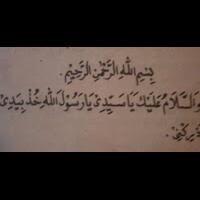 بِسْمِ اللهِ الرَّحْمٰنِ الرَّحِيْمِ.
وَالسَّلَامُ عَلَيْكَ يَا سَيِّدِيْ يَا رَسُوْلَ اللهِ خُذْ بِيَدِيْ